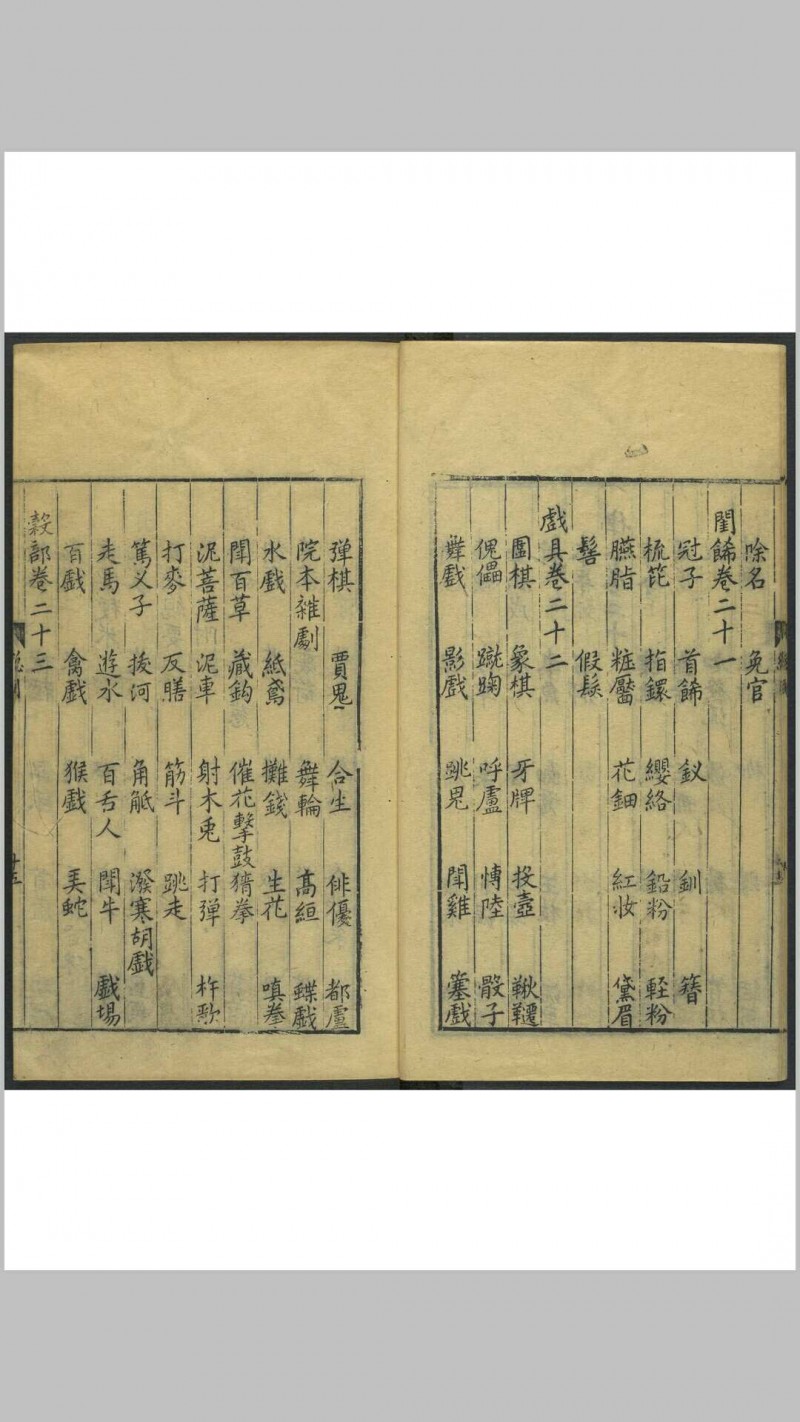 除名 免官
閨餙卷二十一
冠子 首餙 釵 釧 簪
梳篦 指鐶 纓絡 鉛粉 輕粉
臙脂 粧靨 花鈿 紅妝 黛眉
髻 假髮
戲具卷二十二
圍棋 象棋 牙牌 投壺 鞦韆
傀儡 蹴踘 呼盧 博陸 骰子
舞戲 影戲 跳鬼 鬪雞 塞戲
弹棋 賈鬼 合生 俳優 都盧
院本雜劇 舞輪 高絙 蹀戲
水戲 紙鳶 攤錢 生花 嗔拳
鬪百草 藏鈎 催花擊鼓 猜拳
泥菩薩 泥車 射木兎 打弹 杵歌
打麥 反膳 筋斗 跳走
篤义子 拔河 角觝 潑寒胡戲
走馬 遊水 百舌人 鬪牛 戲場
百戲 禽戲 猴戲 弄蛇
穀部卷二十三